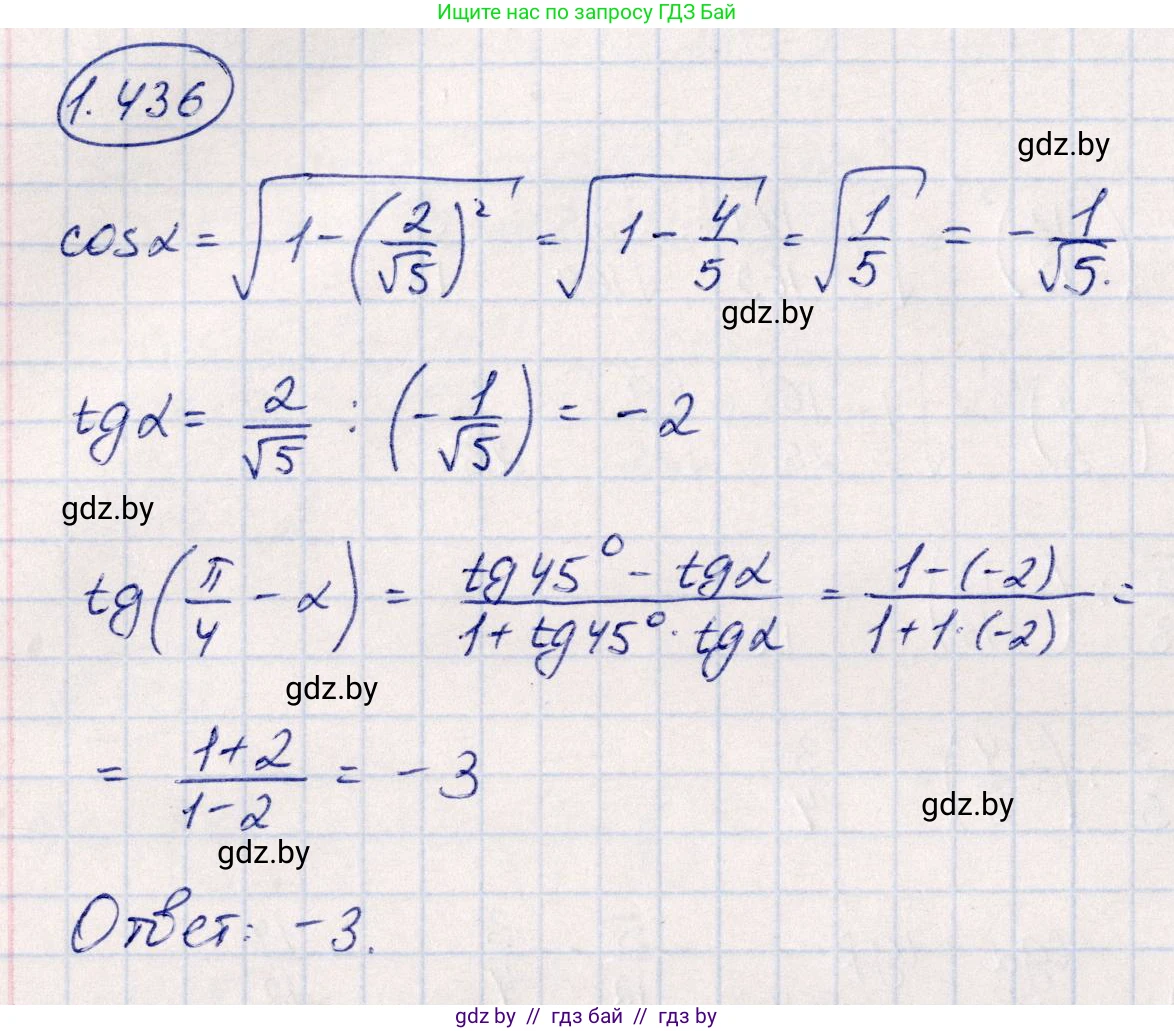 Ищите нас по запросу ГДЗ Бай
1.436
gdz.by
cosα = √(1 - (2/√5)²) = √(1 - 4/5) = √(1/5) = - 1/√5.
gdz.by
tgα = 2/√5 : (- 1/√5) = - 2
gdz.by
tg(π/4 - α) = (tg45° - tgα)/(1 + tg45° · tgα) = (1 - (-2))/(1 + 1 · (-2)) =
gdz.by
= (1 + 2)/(1 - 2) = - 3
gdz.by
gdz.by
Ответ: - 3.
gdz.by // гдз бай // гдз by